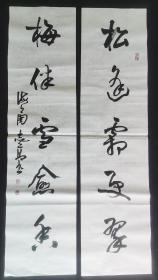 松逢霜更翠
梅伴雪愈香